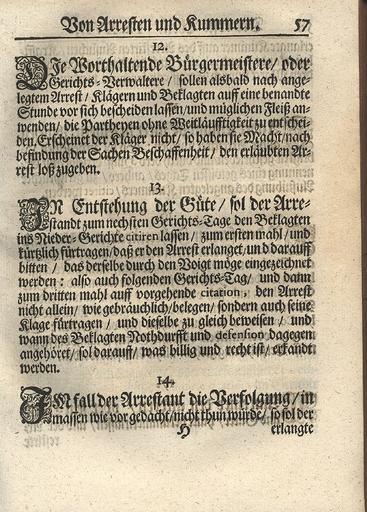 Von Arresten und Kummern. 57
12.
DIe Worthaltende Bürgermeistere/ oder
Gerichts-Verwaltere/ sollen alsbald nach ange-
legtem Arrest/ Klägern und Beklagten auff eine benandte
Stunde vor sich bescheiden lassen/und müglichen Fleiß an-
wenden/ die Partheyen ohne Weitläufftigkeit zu entschei-
den. Erscheinet der Kläger nicht/ so haben sie Macht/nach
befindung der Sachen Beschaffenheit/ den erläubten Ar-
rest loß zugeben.
13.
IN Entstehung der Güte/ sol der Arre-
standt zum nechsten Gerichts-Tage den Beklagten
ins Nieder-Gerichte citiren lassen/ zum ersten mahl/und
kürtzlich fürtragen/daß er den Arrest erlanget/und darauff
bitten/ das derselbe durch den Voigt möge eingezeichnet
werden: also auch folgenden Gerichts-Tag/ und dann
zum dritten mahl auff vorgehende citation, den Arrest
nicht allein/ wie gebräuchlich/belegen/ sondern auch seine
Klage fürtragen/ und dieselbe zu gleich beweisen/ und
wann des Beklagten Nothdurfft und defension dagegen
angehöret/ sol darauff/ was billig und recht ist/ erkandt
werden.
14.
IM fall der Arrestant die Verfolgung/in
massen wie vor gedacht/nicht thun würde/ so sol der
H erlangte